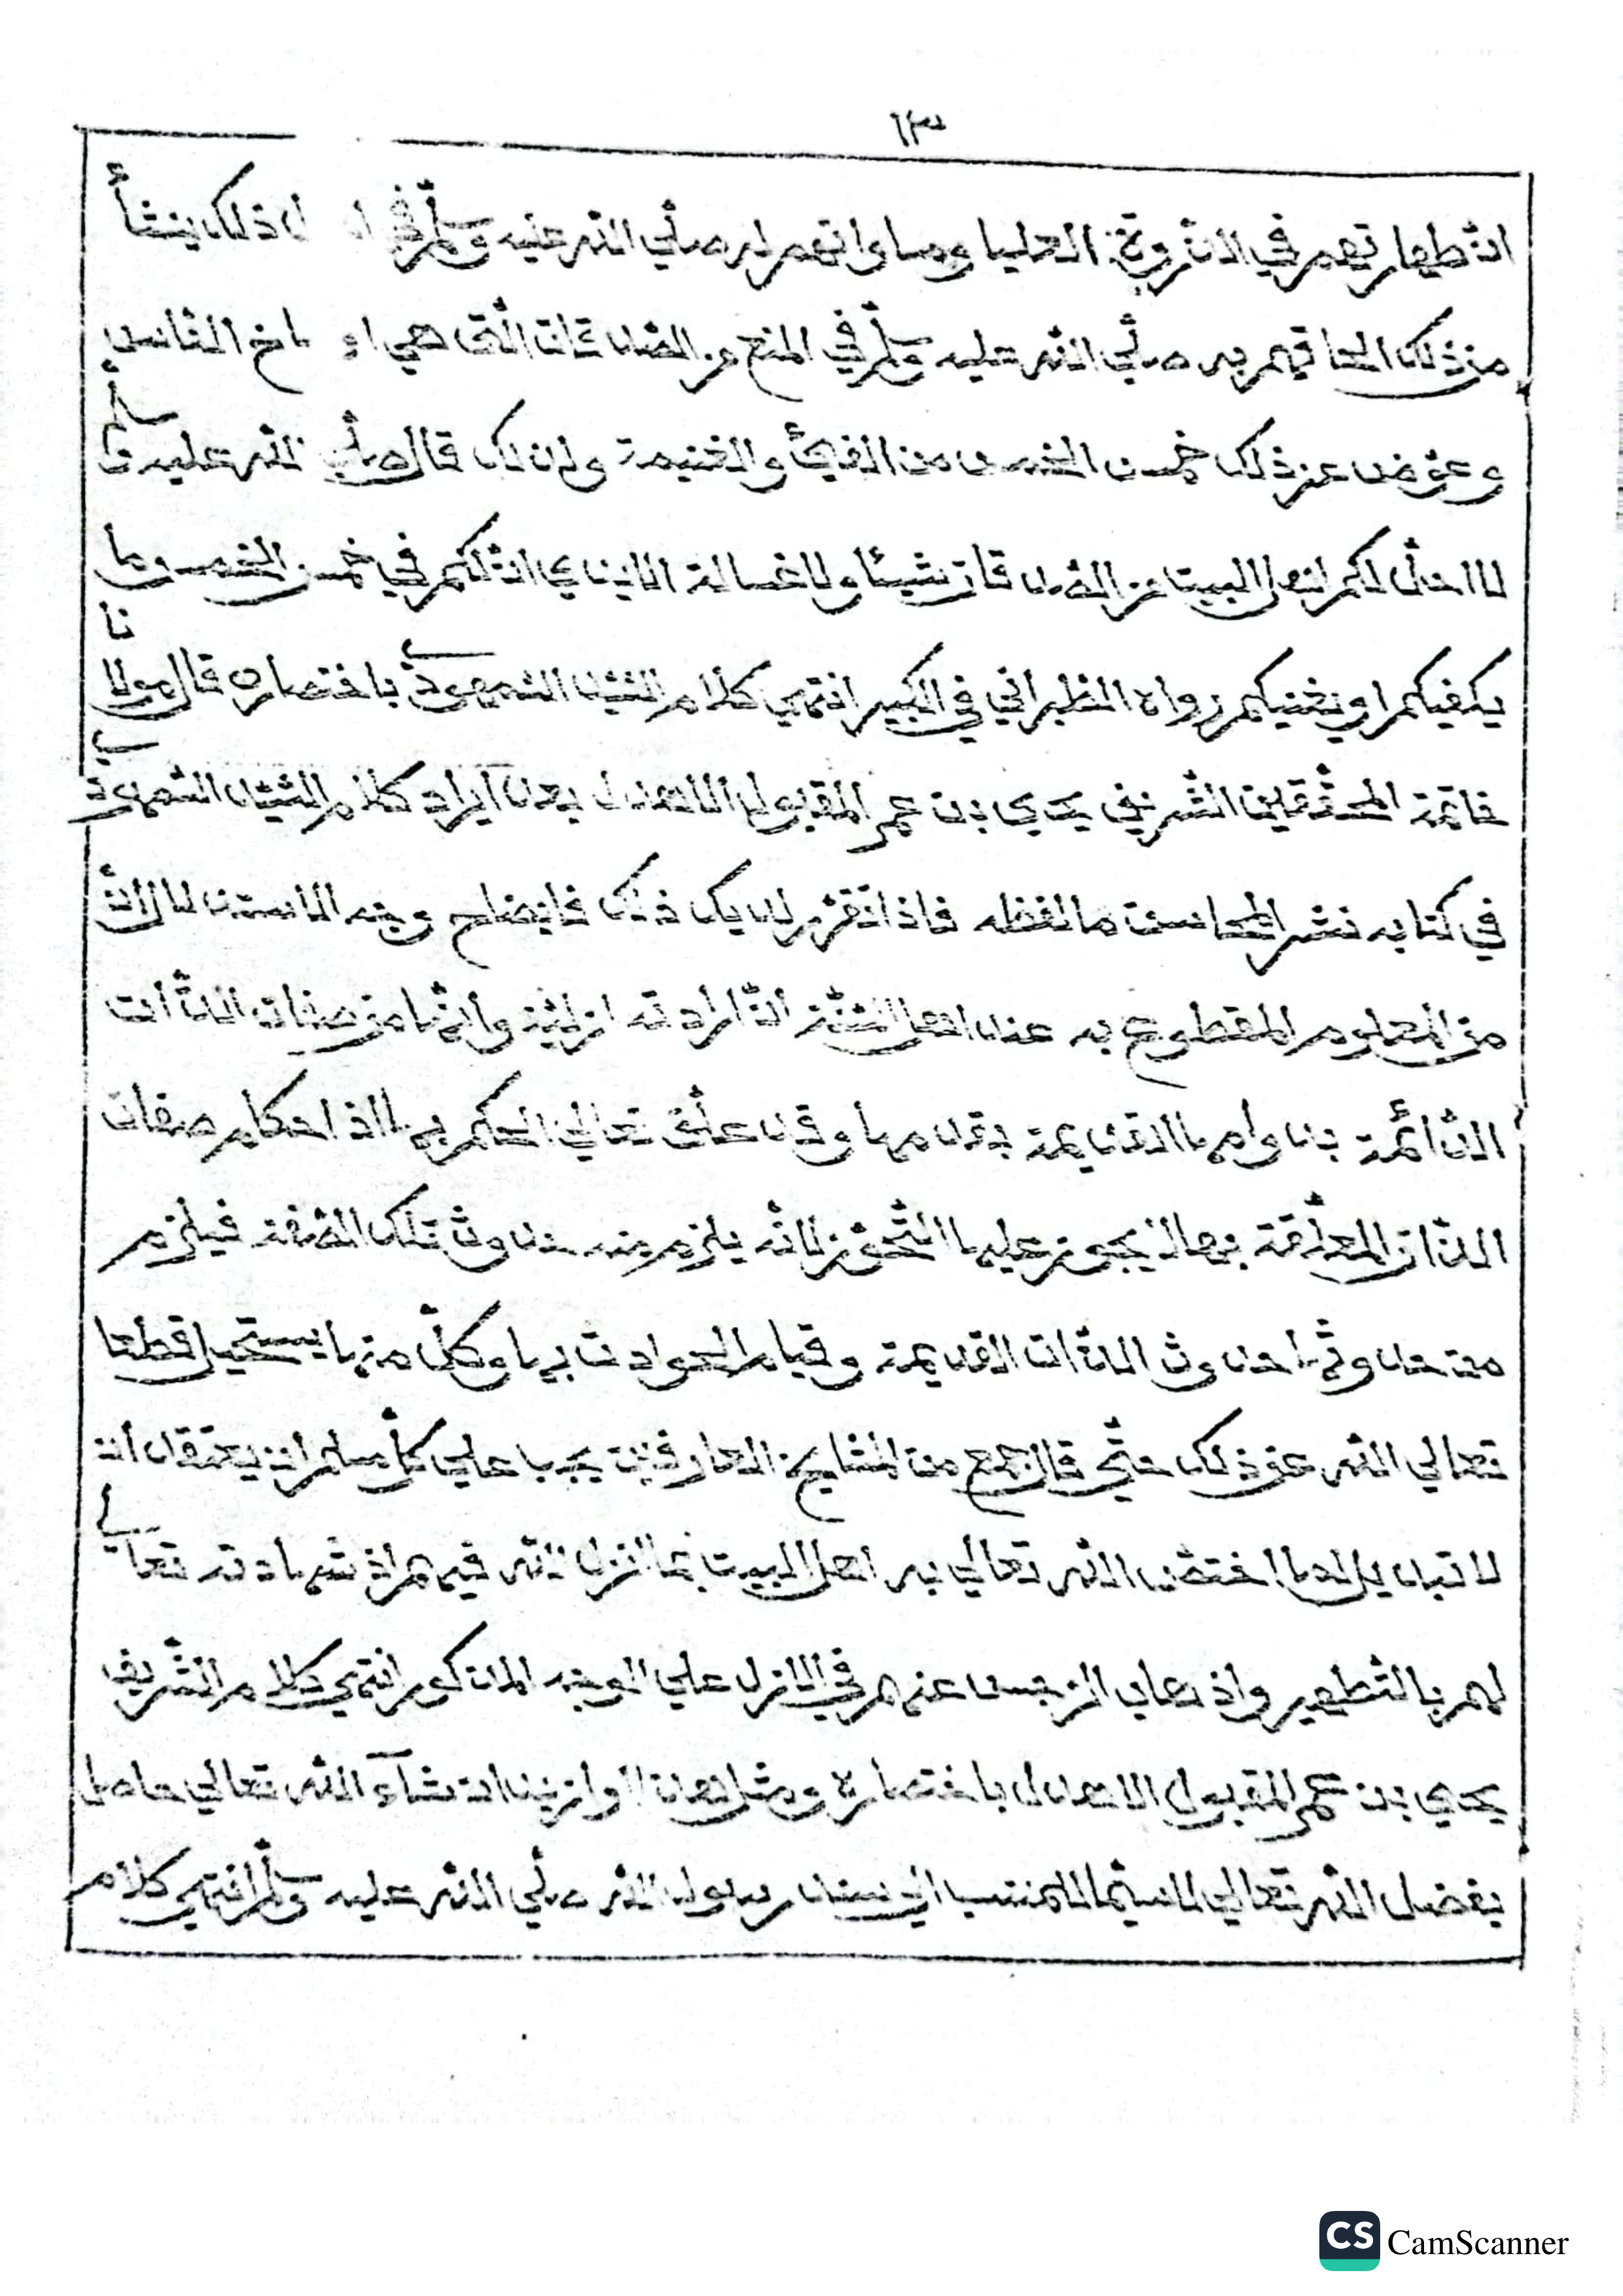 ١٣
انّ طهارتهم في الذّروة العليا ومساواتهم له صلّي اللّه عليه وسلّم في ذلك ينشأ
من ذلك الحاقهم به صلّي اللّه عليه وسلّم في المنع من الصّدقات الّتي هي اوساخ النّاس
وعوّض عن ذلك خمس الخمس من الفيئ والغنيمة ولذلك قال صلّي اللّه عليه وسلّم
لا احلّ لكم اهل البيت من الصّدقات شيئا ولا غسالة الايدي انّ لكم في خمس الخمس وما
يكفيكم او يغنيكم رواه الطّبراني في الكبير انتهي كلام السّيّد السّمهوديّ باختصاره قال مولانا
خاتمة المحقّقين الشّريف يحيي بن عمر المقبول الاهدل بعد ايراد كلام السّيّد السّمهوديّ
في كتابه نشر المحاسن ما لفظه فاذا تقرّر لديك ذلك فايضاح وجه الاستدلال انّ
من المعلوم المقطوع به عند اهل السّنّة انّ ارادته ازليّة وانّها من صفات الذّات
الدّائمة بدوامها القديمة بقدمها وقد علّق تعالي الحكم بها اذ احكام صفات
الذّات المعلّقة بها لا يجوز عليها التّجوّز لانّه يلزم منه حدوث تلك الصّفة فيلزم
من حدوثها حدوث الذّات القديمة وقيام الحوادث بها وكلّ منها يستحيل قطعا
تعالي اللّه عن ذلك حتّي قال جمع من المشايخ العارفين يجب علي كلّ مسلم ان يعتقد ان
لا تبديل لما اختصّ اللّه تعالي به اهل البيت بما انزل اللّه فيهم اذ شهادته تعالي
لهم بالتّطهير واذهاب الرّجس عنهم في الازل علي الوجه المذكور انتهي كلام الشّريف
يحيي بن عمر المقبول الاهدل باختصاره ومثل هذا وازيد ان شآء اللّه تعالي حاصل
بفضل اللّه تعالي لاسيّما المنتسب الي سيّد رسول اللّه صلّي اللّه عليه وسلّم انتهي كلام
CS CamScanner